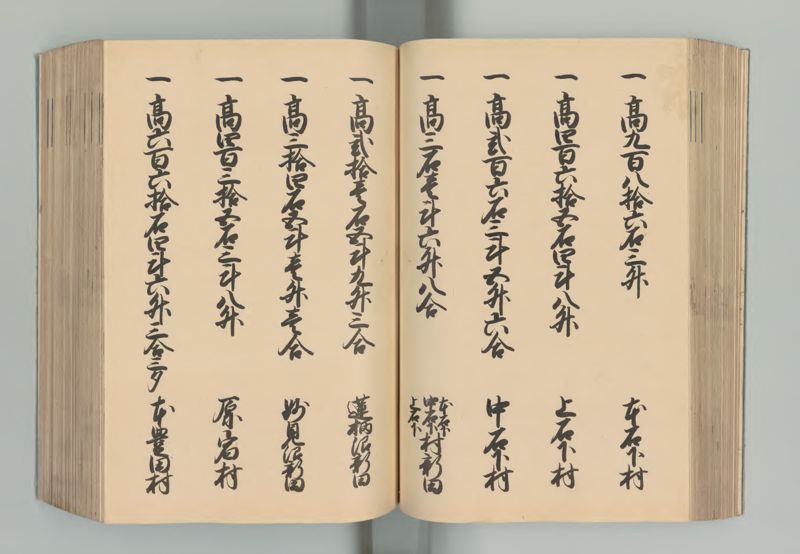 一 高九百八拾六石三升 本石下村
一 高四百六拾五石四斗八升 上石下村
一 高弐百六石三斗五升六合 中石下村
一 高三石壱斗六升八合 本石下 中石下 上石下 村新田
一 高弐拾壱石五斗九升三合 蓮柄沼新田
一 高三拾四石五斗壱升壱合 妙見沼新田
一 高四百三拾五石三斗八升 原宿村
一 高六百六拾石四斗六升三合三夕 本豊田村